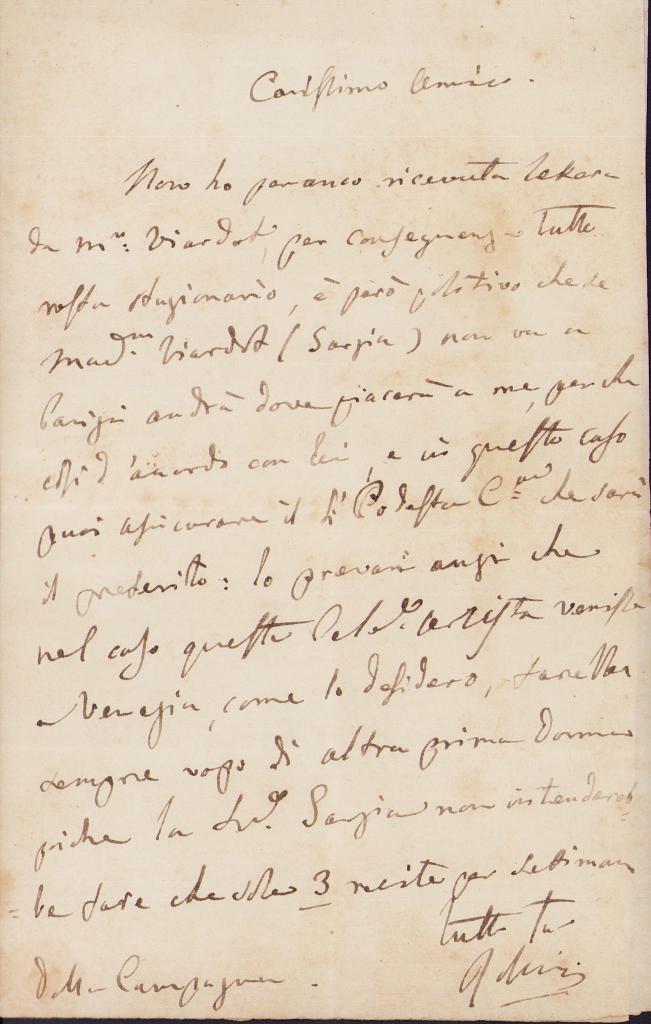 Carissimo Amico.
Non ho peranco ricevuta lettera
da Mr: Viardot, per conseguenza tutto
resta stazionario, è però positivo che se
Madme Viardot (Garzia) non va a
Parigi andrà dove piacerà a me, perchè
così d'accordo con lui, e in questo caso
puoi assicurare il Podestà che sarà
il preferito: lo prevari anzi che
nel caso questa Celebe artista venisse
a Venezia, come lo desidero, farebbe
sempre uopo di altra prima Donna
poiche la Garzia non intendereb=
=be fare che sole 3 recite per settimana
tutto tuo
Dalla Campagna.